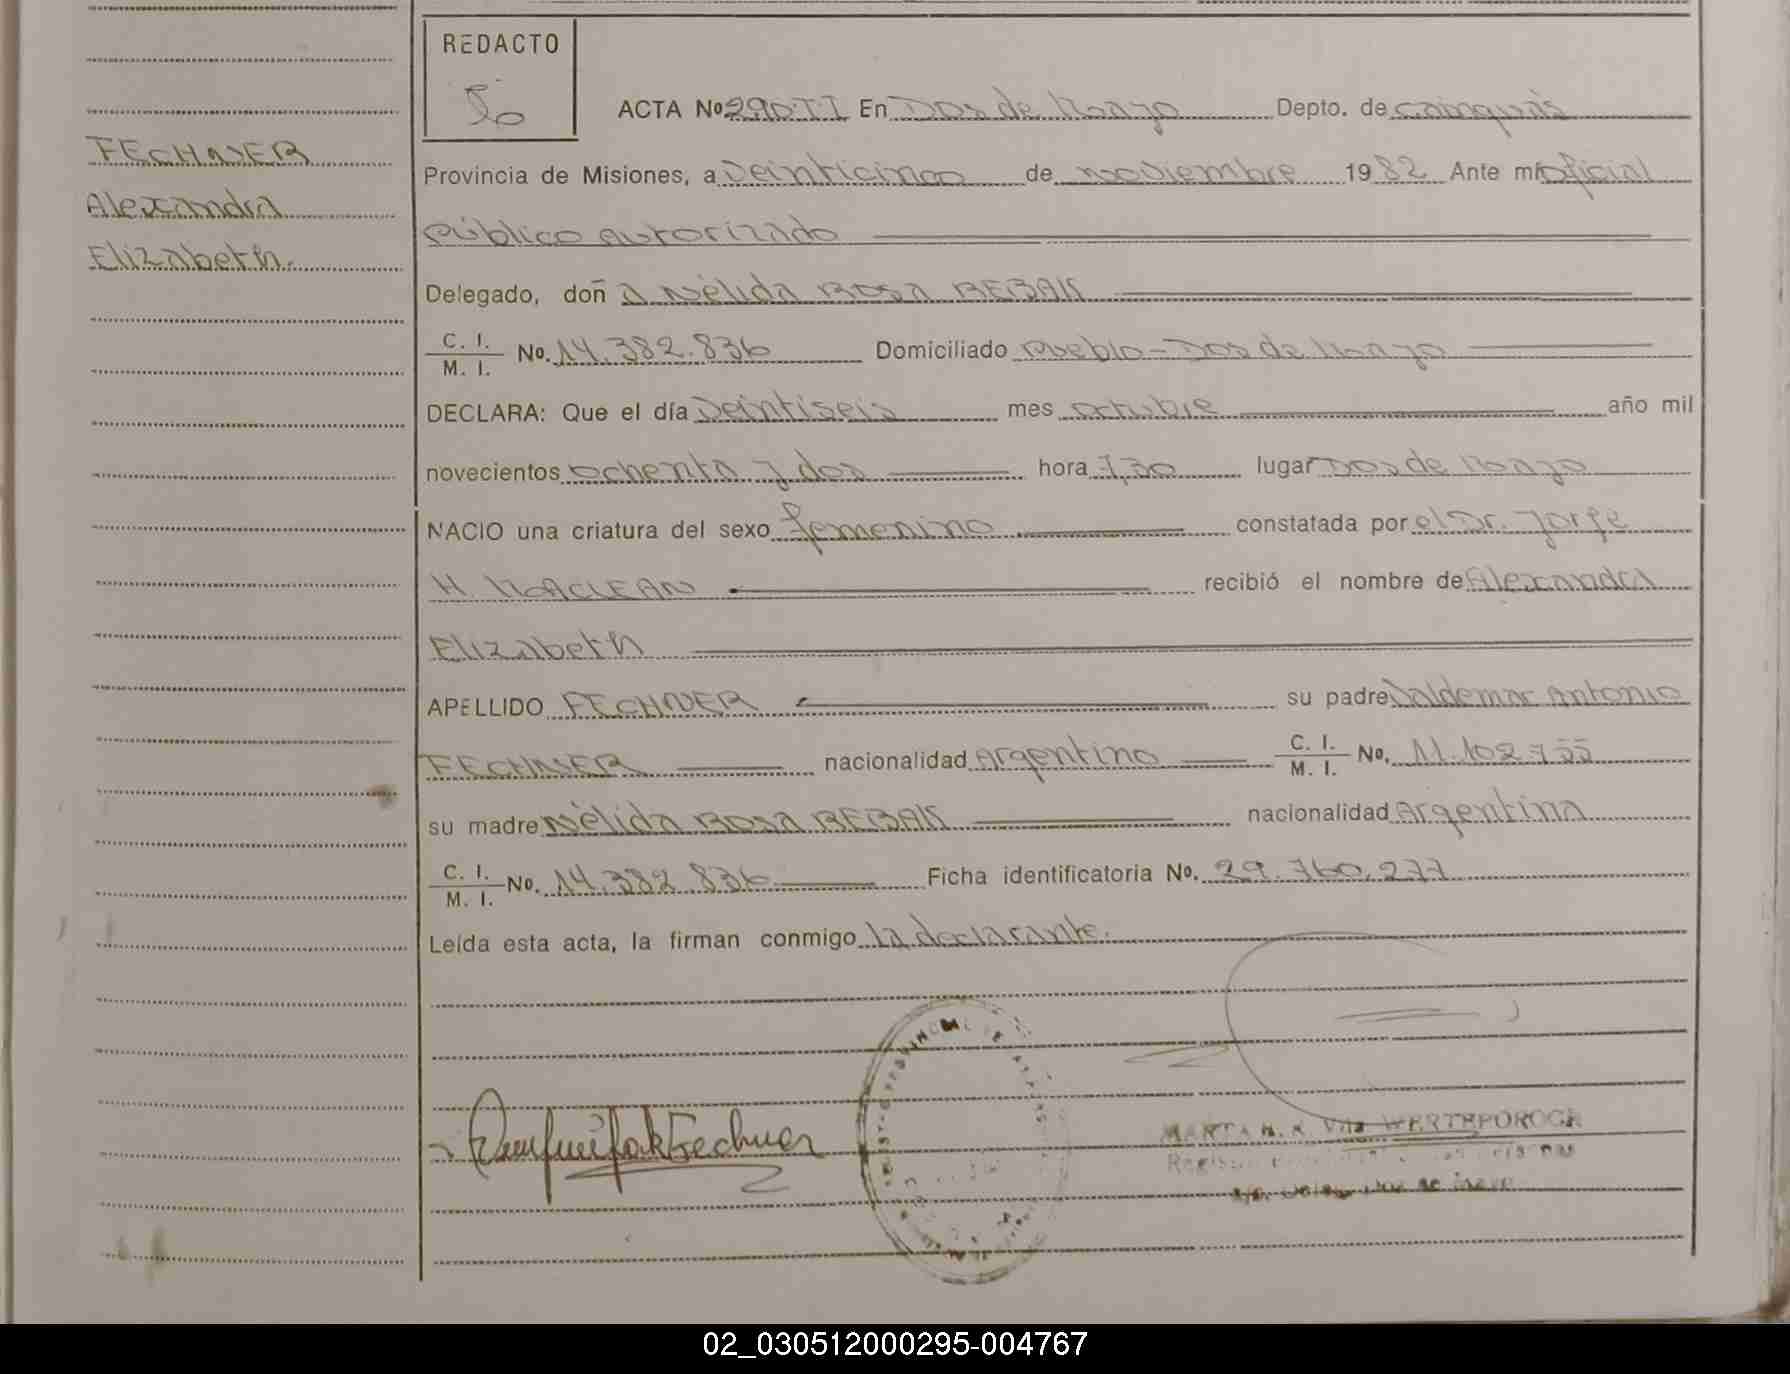 REDACTO
ACTA No 290.TI En Dos de Mayo Depto. de Cainguás
FECHNER
Alexandra
Elizabeth.
Provincia de Misiones, a veinticinco de noviembre 1982 Ante mí oficial
público autorizado
Delegado, doña Nélida Rosa REBAK
C. I.
M. I. No. 14.382.836 Domiciliado Pueblo - Dos de Mayo
DECLARA: Que el día veintiseis mes octubre año mil
novecientos ochenta y dos hora 7,30 lugar Dos de Mayo
NACIO una criatura del sexo femenino constatada por el Dr. Jorge
H. MACLEAN recibió el nombre de Alexandra
Elizabeth
APELLIDO FECHNER su padre Valdemar Antonio
FECHNER nacionalidad Argentino C. I.
M. I. No. 11.102.755
su madre Nélida Rosa REBAK nacionalidad Argentina
C. I.
M. I. No. 14.382.836 Ficha identificatoria No. 29.760.277
Leída esta acta, la firman conmigo la declarante.
MARTA
02_030512000295-004767